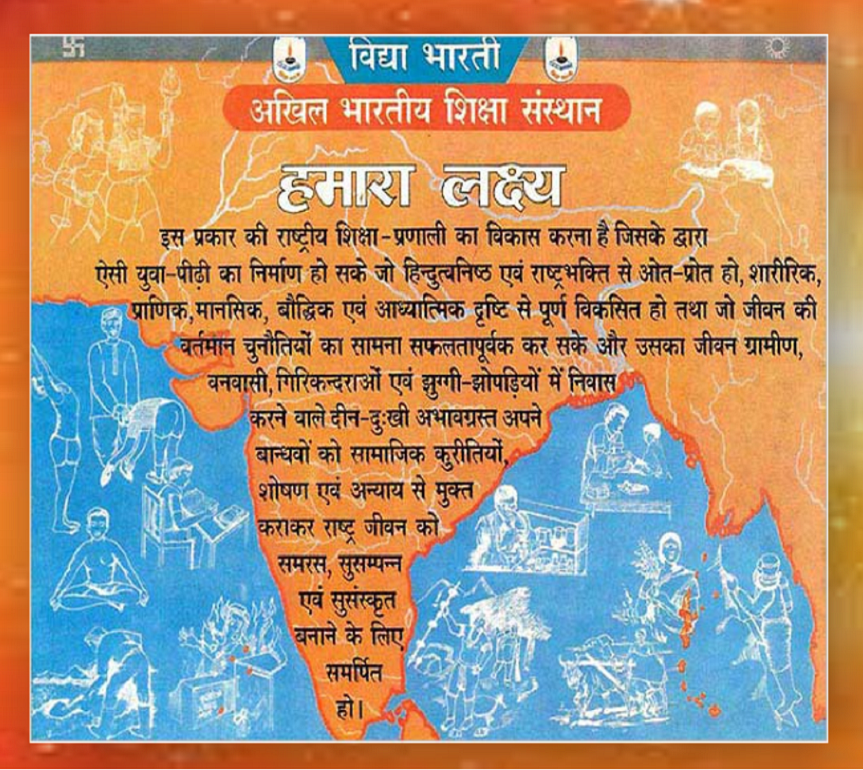 विद्या भारती
अखिल भारतीय शिक्षा संस्थान
हमारा लक्ष्य
इस प्रकार की राष्ट्रीय शिक्षा-प्रणाली का विकास करना है जिसके द्वारा
ऐसी युवा-पीढ़ी का निर्माण हो सके जो हिन्दुत्वनिष्ठ एवं राष्ट्रभक्ति से ओत-प्रोत हो, शारीरिक,
प्राणिक, मानसिक, बौद्धिक एवं आध्यात्मिक दृष्टि से पूर्ण विकसित हो तथा जो जीवन की
वर्तमान चुनौतियों का सामना सफलतापूर्वक कर सके और उसका जीवन ग्रामीण,
वनवासी, गिरिकन्दराओं एवं झुग्गी-झोपड़ियों में निवास
करने वाले दीन-दुःखी अभावग्रस्त अपने
बान्धवों को सामाजिक कुरीतियों,
शोषण एवं अन्याय से मुक्त
कराकर राष्ट्र जीवन को
समरस, सुसम्पन्न
एवं सुसंस्कृत
बनाने के लिए
समर्पित
हो।